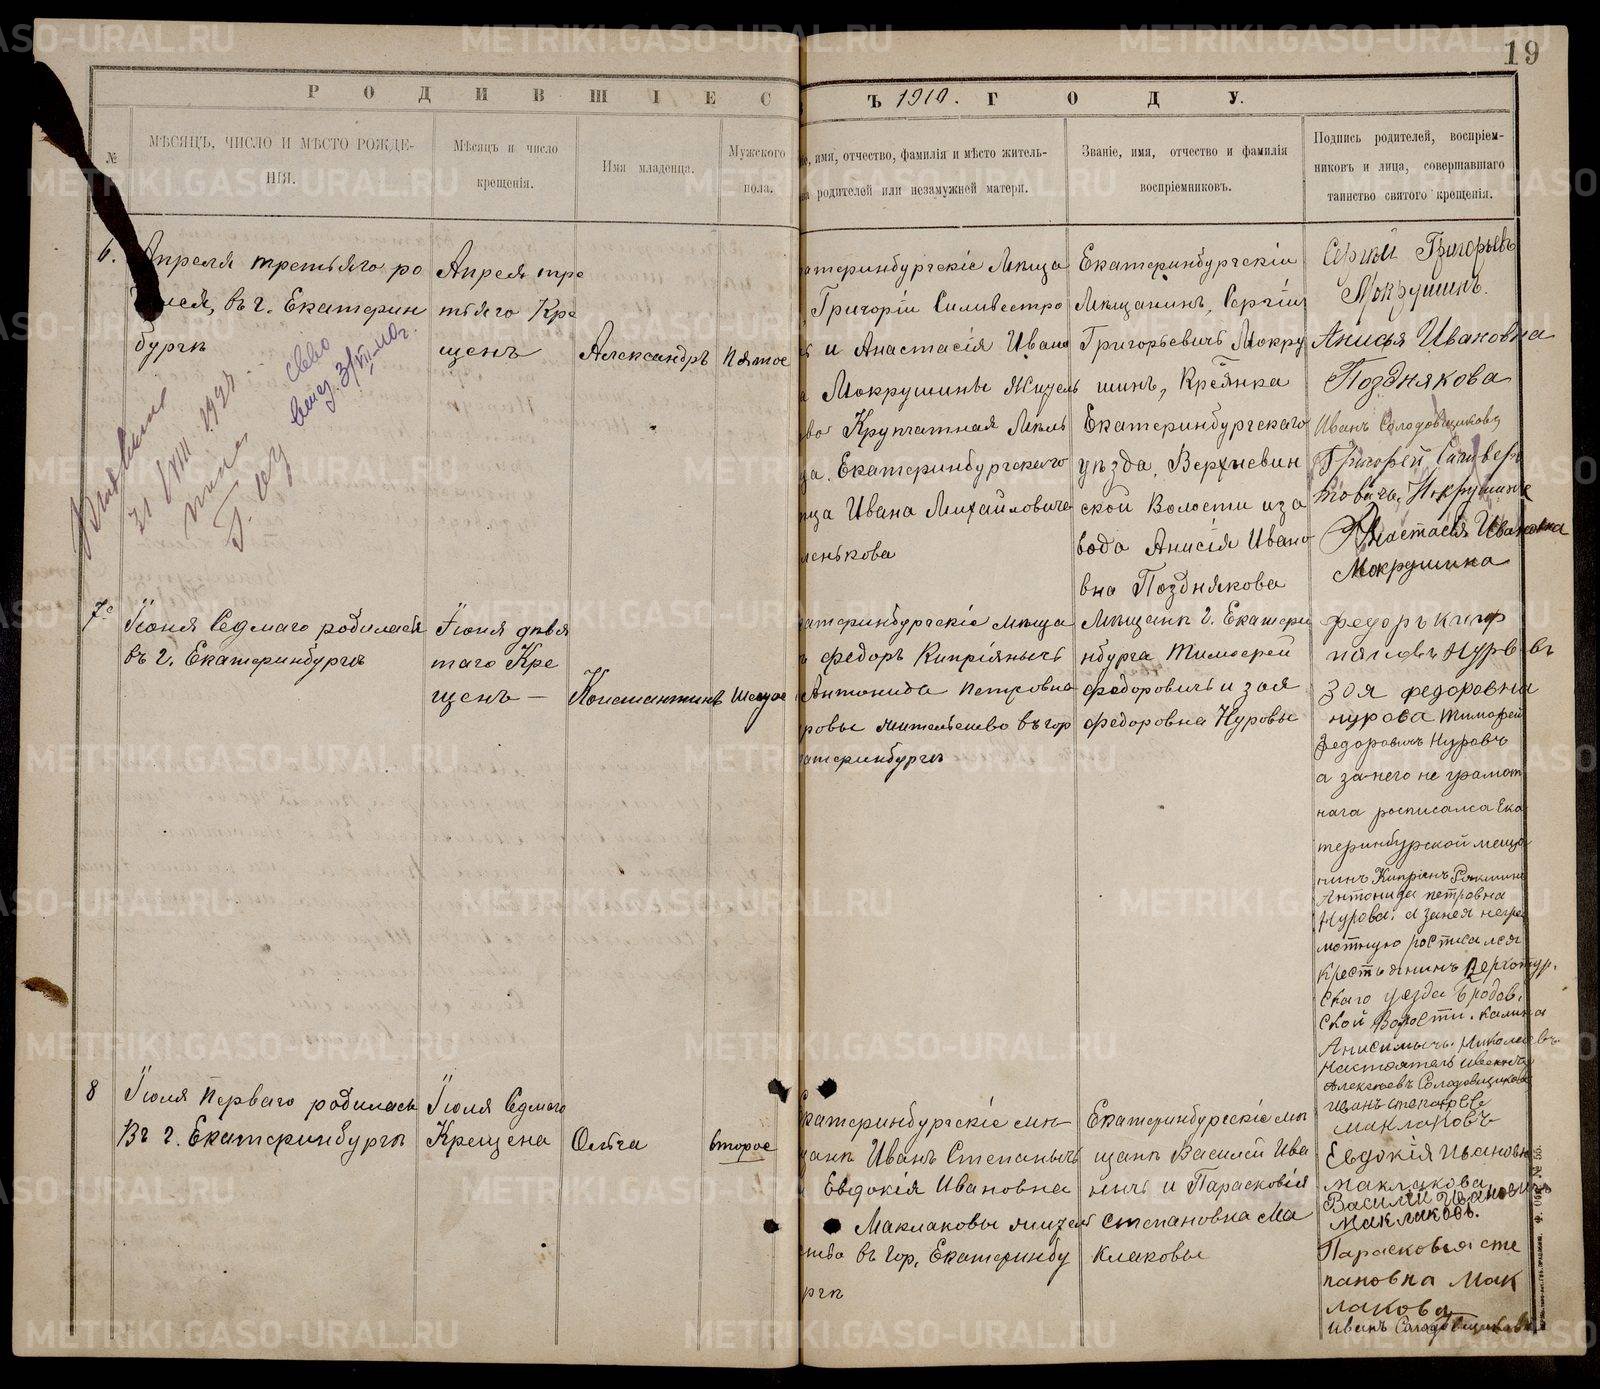 19
Р О Д И В Ш І Е С
Ъ 1910. Г О Д У.
№
МѢСЯЦЪ, ЧИСЛО И МѢСТО РОЖДЕ-
НІЯ.
Мѣсяцъ и число
крещенія.
Имя младенца.
Мужского
пола.
имя, отчество, фамилія и мѣсто житель-
родителей или незамужней матери.
Званіе, имя, отчество и фамилія
воспріемниковъ.
Подпись родителей, воспріем-
никовъ и лица, совершавшаго
таинство святого крещенія.
6.
Апреля третьяго ро
въ г. Екатерин
бургѣ
Апреля тре
тьяго Кре
щенъ
Александръ
Пятое
атеринбургскіе Мѣща
Григорій Силивестро
и Анастасія Ивано
Мокрушины Жител
во Крупчатная Мѣль
ца. Екатеринбургскаго
Ивана Михайловича
Екатеринбургскій
Мѣщанинъ, Сергій
Григорьевичъ Мокру
шинъ, Кр-янка
Екатеринбургскаго
уѣзда, Верхневин
ской Волости и за
вода Анисія Ивано
вна Позднякова
Сергѣй Григорьевъ
Мокрушинъ.
Анисья Ивановна
Позднякова
Иванъ Солодовщиковъ
Григорей Силивер
стовичъ Мокрушинъ
Анастасія Ивановна
Мокрушина
21/VIII 192
7.
Іюня Седмаго родилася
въ г. Екатеринбургѣ
Іюня девя
таго Кре
щенъ —
Константинъ
Шестое
атеринбургскіе мѣща
Федоръ Кипріянычъ
Антонида Петровна
ровы жительство въ гор
атеринбургѣ
Мѣщанѣ г. Екатери
нбурга Тимофей
Федоровичъ и Зоя
Федоровна Нуровы
Федоръ Кипр
Нуровъ
Зоя Федоровна
Нурова Тимофей
Федоровичъ Нуровъ
а за него не грамот
наго росписался Ека
теринбурской меща
нинъ Кипріянъ
Антонида петровна
Нурова. а за нея негра
мотную росписался
Крестьянинъ Верхотур.
скаго уезда Бродов.
ской Волости. Калина
Анисимычъ. Николаевъ.
Настоятель Иванъ
Алексѣевъ Солодовщиковъ
8
Іюля Перваго родилась
Въ г. Екатеринбургѣ
Іюля Седмаго
Крещена
Ольга
второе
Екатеринбургскіе мѣ
щанѣ Иванъ Степанычъ
Евдокія Ивановна
Маклаковы жител
ство въ гор. Екатеринбу
ргѣ
Екатеринбургскіе мѣ
щанѣ Василей Ива
ничъ и Парасковія
Степановна Ма
клаковы
Иванъ Степановъ
Маклаковъ
Евдокія Ивановна
Маклакова
Василій Ивановичъ
Маклаковъ.
Парасковья сте
пановна Мак
лакова
Иванъ Солодовщиковъ
METRIKI.GASO-URAL.RU